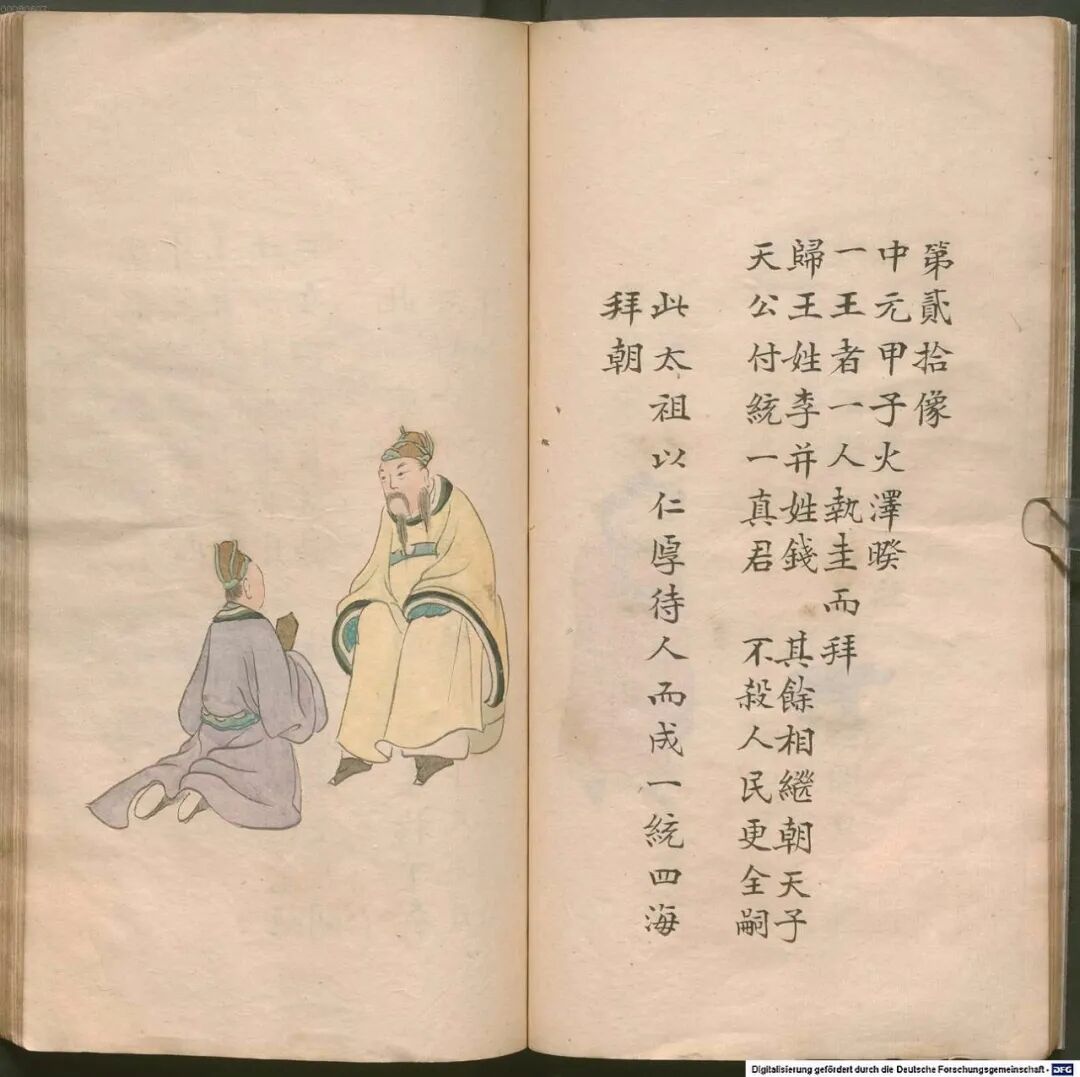 第貳拾像
中元甲子火澤暌
一王者一人執圭而拜
歸王姓李并姓錢 其餘相繼朝天子
天公付統一真君 不殺人民更全嗣
此太祖以仁厚待人而成一統四海
拜朝
Digitalisierung gefördert durch die Deutsche Forschungsgemeinschaft - DFG